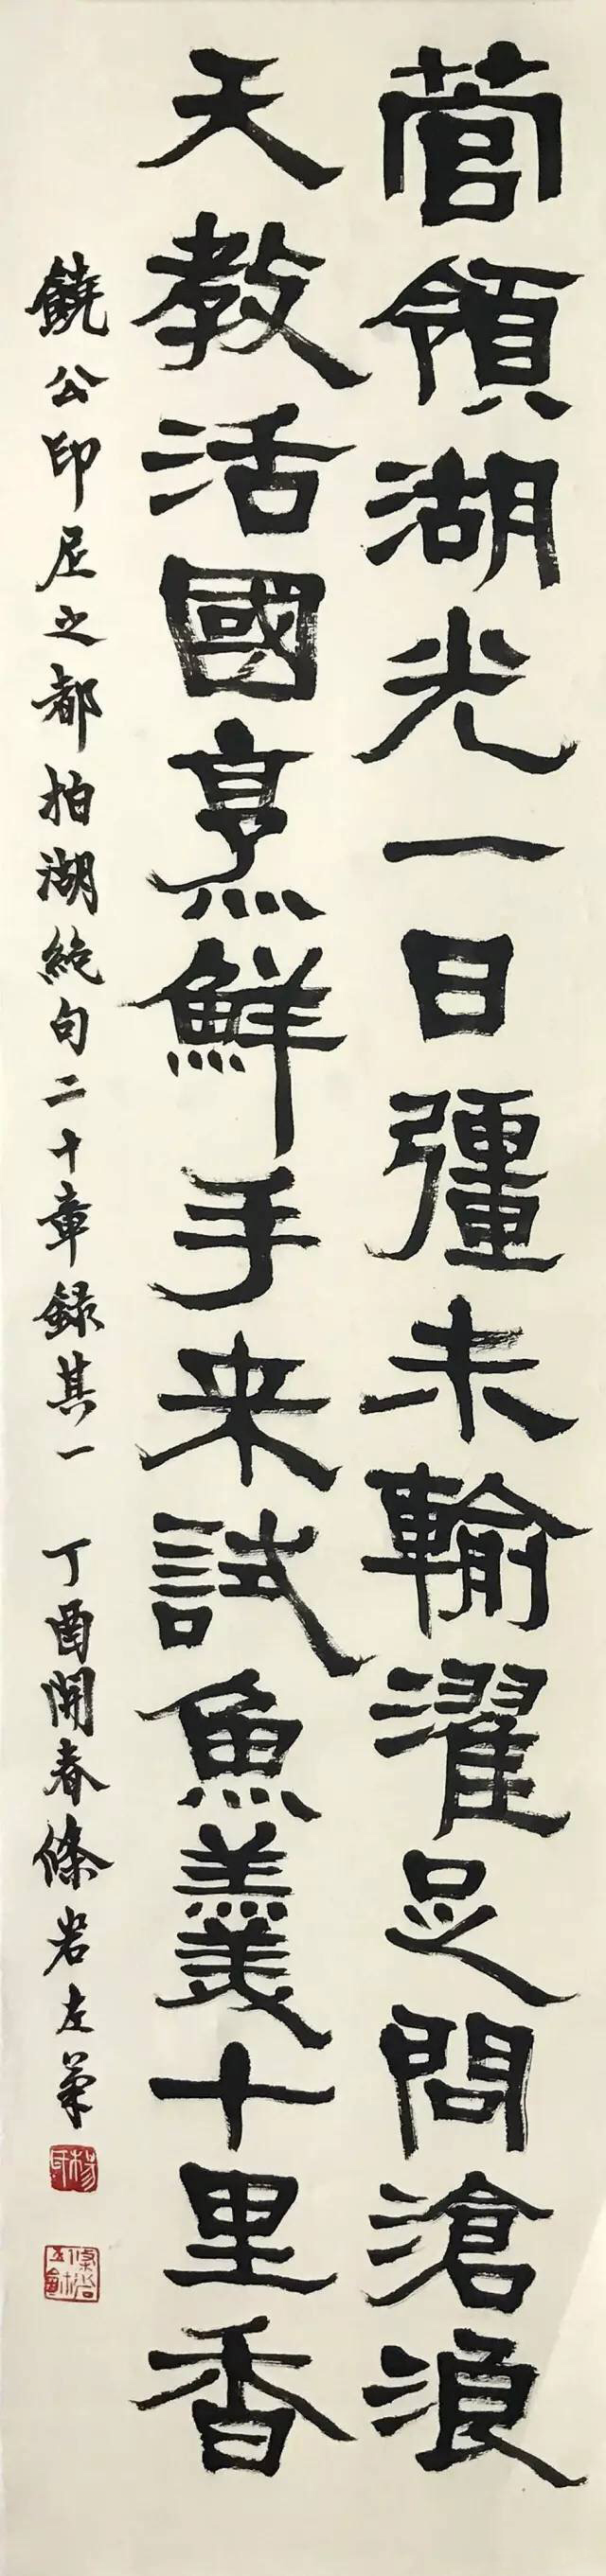 菅領湖光一日彊未輸濯足問滄浪
天教活國烹鮮手来試魚羹十里香
饒公印尼之都拍湖絶句二十章録其一 丁酉開春條岩左筆